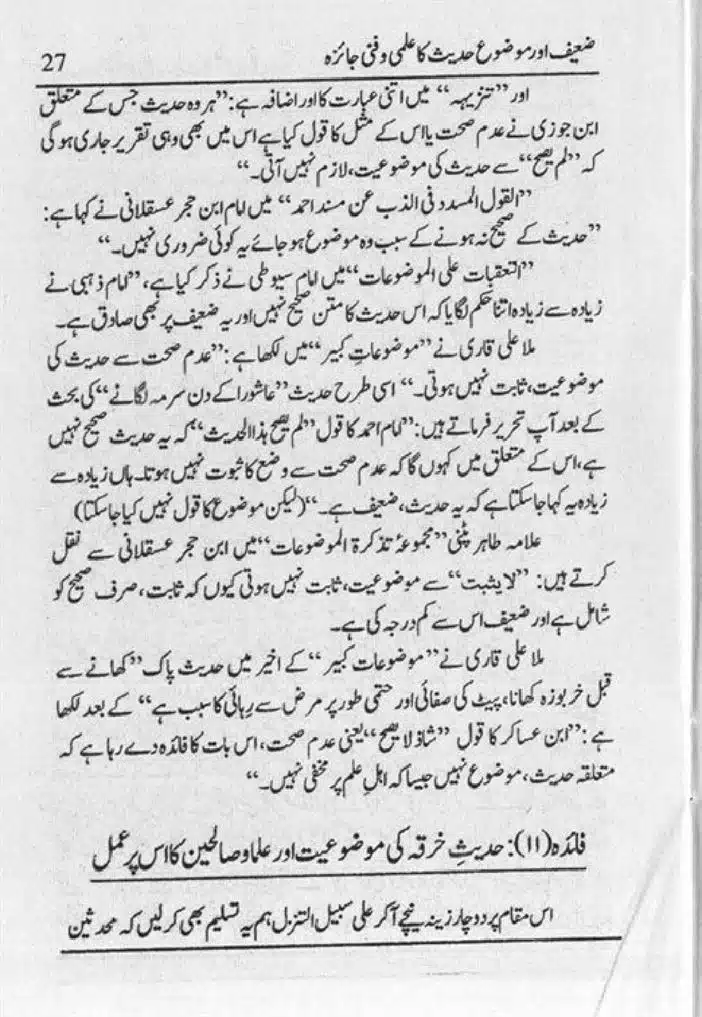 ضعیف اور موضوع حدیث کا علمی و فنی جائزہ 27
اور ”تنزیہہ“ میں اتنی عبارت کا اور اضافہ ہے: ”ہر وہ حدیث جس کے متعلق
ابن جوزی نے عدم صحت یا اس کے مثل کا قول کیا ہے اس میں بھی وہی تقریر جاری ہوگی
کہ ”لم یصح“ سے حدیث کی موضوعیت، لازم نہیں آتی۔“
”القول المسدد فی الذب عن مسند احمد“ میں امام ابن حجر عسقلانی نے کہا ہے:
”حدیث کے صحیح نہ ہونے کے سبب وہ موضوع ہو جائے یہ کوئی ضروری نہیں۔“
”التعقبات علی الموضوعات“ میں امام سیوطی نے ذکر کیا ہے، ”امام ذہبی نے
زیادہ سے زیادہ اتنا حکم لگایا کہ اس حدیث کا متن صحیح نہیں اور یہ ضعیف پر بھی صادق ہے۔
ملا علی قاری نے ”موضوعاتِ کبیر“ میں لکھا ہے: ”عدم صحت سے حدیث کی
موضوعیت، ثابت نہیں ہوتی۔“ اسی طرح حدیث ”عاشورا کے دن سرمہ لگانے“ کی بحث
کے بعد آپ تحریر فرماتے ہیں: ”امام احمد کا قول ”لم یصح ہذا الحدیث“ کہ یہ حدیث صحیح نہیں
ہے، اس کے متعلق میں کہوں گا کہ عدم صحت سے وضع کا ثبوت نہیں ہوتا۔ ہاں زیادہ سے
زیادہ یہ کہا جا سکتا ہے کہ یہ حدیث، ضعیف ہے۔“ (لیکن موضوع کا قول نہیں کیا جا سکتا)
علامہ طاہر پٹنی ”مجموعۂ تذکرۃ الموضوعات“ میں ابن حجر عسقلانی سے نقل
کرتے ہیں: ”لا یثبت“ سے موضوعیت، ثابت نہیں ہوتی کیوں کہ ثابت، صرف صحیح کو
شامل ہے اور ضعیف اس سے کم درجہ کی ہے۔
ملا علی قاری نے ”موضوعات کبیر“ کے اخیر میں حدیث پاک ”کھانے سے
قبل خربوزہ کھانا، پیٹ کی صفائی اور حتمی طور پر مرض سے رہائی کا سبب ہے“ کے بعد لکھا
ہے: ”ابن عساکر کا قول ”شاذ لا یصح“ یعنی عدم صحت، اس بات کا فائدہ دے رہا ہے کہ
متعلقہ حدیث، موضوع نہیں جیسا کہ اہلِ علم پر مخفی نہیں۔“
فائدہ (۱۱): حدیثِ خرقہ کی موضوعیت اور علما و صالحین کا اس پر عمل
اس مقام پر دو چار زینہ نیچے آ کر علی سبیل التنزل ہم یہ تسلیم بھی کر لیں کہ محدثین